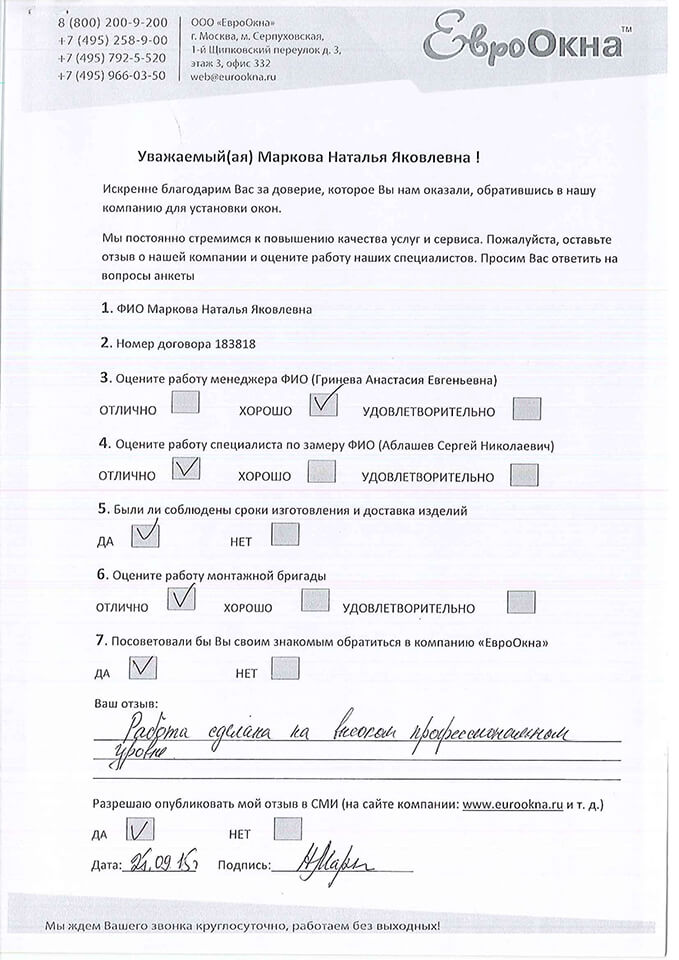 8 (800) 200-9-200
+7 (495) 258-9-00
+7 (495) 792-5-520
+7 (495) 966-03-50
ООО «ЕвроОкна»
г. Москва, м. Серпуховская,
1-й Щипковский переулок д. 3,
этаж 3, офис 332
web@eurookna.ru
ЕвроОкна™
Уважаемый(ая) Маркова Наталья Яковлевна !
Искренне благодарим Вас за доверие, которое Вы нам оказали, обратившись в нашу
компанию для установки окон.
Мы постоянно стремимся к повышению качества услуг и сервиса. Пожалуйста, оставьте
отзыв о нашей компании и оцените работу наших специалистов. Просим Вас ответить на
вопросы анкеты
1. ФИО Маркова Наталья Яковлевна
2. Номер договора 183818
3. Оцените работу менеджера ФИО (Гринева Анастасия Евгеньевна)
ОТЛИЧНО ХОРОШО УДОВЛЕТВОРИТЕЛЬНО
4. Оцените работу специалиста по замеру ФИО (Аблашев Сергей Николаевич)
ОТЛИЧНО ХОРОШО УДОВЛЕТВОРИТЕЛЬНО
5. Были ли соблюдены сроки изготовления и доставка изделий
ДА НЕТ
6. Оцените работу монтажной бригады
ОТЛИЧНО ХОРОШО УДОВЛЕТВОРИТЕЛЬНО
7. Посоветовали бы Вы своим знакомым обратиться в компанию «ЕвроОкна»
ДА НЕТ
Ваш отзыв:
Работа сделана на высоком профессиональном
уровне.
Разрешаю опубликовать мой отзыв в СМИ (на сайте компании: www.eurookna.ru и т. д.)
ДА НЕТ
Дата: 25.09.15г Подпись:
Мы ждем Вашего звонка круглосуточно, работаем без выходных!